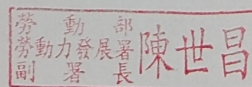 勞動部
勞動力發展署
副署長 陳世昌